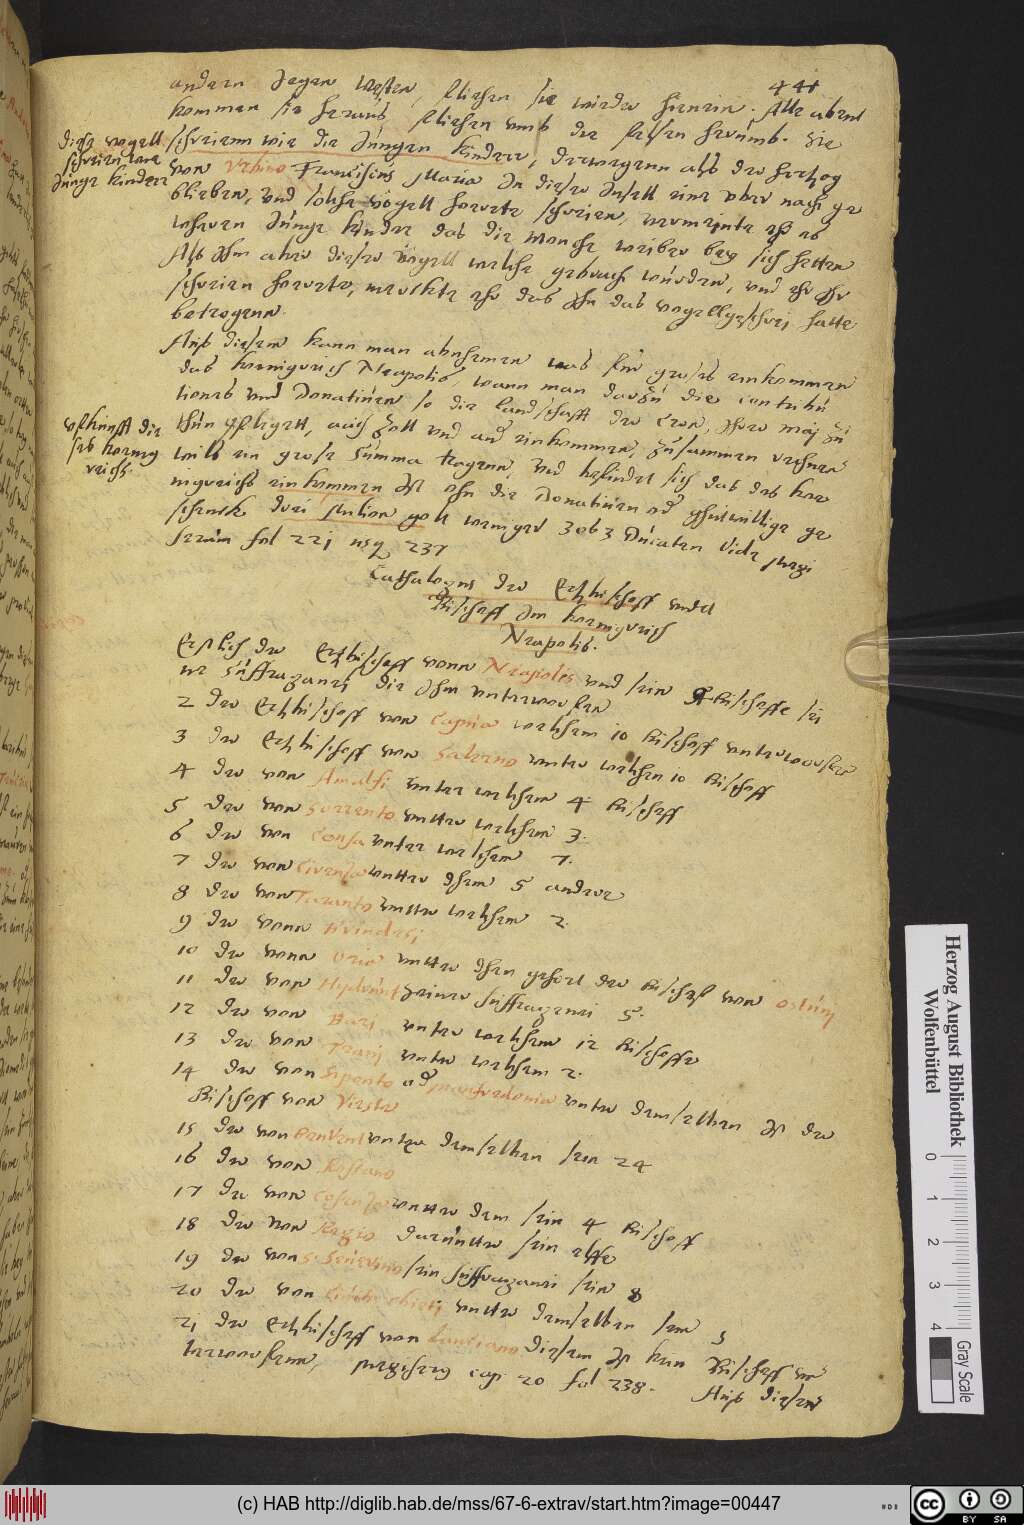 441
andern Jegen Westen, fliehen sie wieder hienein. Alle abent
kommen sie heraus fliehen umb die felsen herumb. Sie
schreienn wie die Jungen kinder, derwegenn als der Hertzog
diese vogell
schreien wie
Junge kinder
von Urbino Franciscus Maria In dieser Insell eine uber nacht ge
blieben, und solche vögell hoerete schreien, vermeinte ehr es
wheren Junge kinder das die Monche weiber bey sich hetten
Als Ihm aber dieser vögell welche gebracht würden, und ehr Ihr
schreien hoerete, merckte ehr das Ihn das vogellgeschrei hatte
betrogenn.
Auß diesem kann man abnhemen was für grosses einkommen
das koenigreich Neapolis, wann man dorzu die contribu
tiones und Donatiuen so die landschafft der Cron, Ihere Maj zu
thun pflegett, auch Zoll und and einkommen, zusammen rechnen
will ein grosse summa tragenn, und befindet sich das des koe
nigreichs einkommen ist ohn die Donatiuen od gutwillige ge
schenck drei Million golt weniger 3063 Ducaten Vide Magi
serum fol 221 usq 237
uffkunfft die
ses koenig
reichs.
Cathalogus der Ertzbischoff undt
Bischoff Im koenigreich
Neapolis.
Erstlich der Ertzbischoff vonn Neapoles und sein Bischoffe sei
ne Suffraganei die Ihm unterworfen
2 der Ertzbischoff von Capua welchem 10 Bischoff unterworfen
3 der Ertzbischoff von Salerno unter welchen 10 Bischoff
4 der von Amalfi unter welchem 4 Bischoff
5 der von Sorrento unter welchem 3.
6 der von Consa unter welchem 7.
7 der von Cirenza unter Ihem 5 andere
8 der von Taranto unter welchem 2.
9 der vonn Brindesi
10 der vonn Oria unter Ihem gehort der Bischoff von Ostuni
11 der von Hydrunt seiner suffraganei 5.
12 der von Bari unter welchem 12 Bischoffe
13 der von Trani unter welchem 2.
14 der von Siponto od Manfredonia unter demselben ist der
Bischoff von Vieste
15 der von Benevent unter demselben sein 24
16 der von Rossano
17 der von Cosenza unter dem sein 4 Bischoff
18 der von Regio darunter sein elffe
19 der von S. Seuerino sein suffraganei sein 8
20 der von Civita chieti unter demselben sein 5
21 der Ertzbischoff von Lanciano diesem ist kein Bischoff un
terworfenn, Magiserus cap 20 fol 238.
Auß diesem
Herzog August Bibliothek
Wolfenbüttel
0 1 2 3 4
Gray Scale
(c) HAB http://diglib.hab.de/mss/67-6-extrav/start.htm?image=00447
CC BY SA